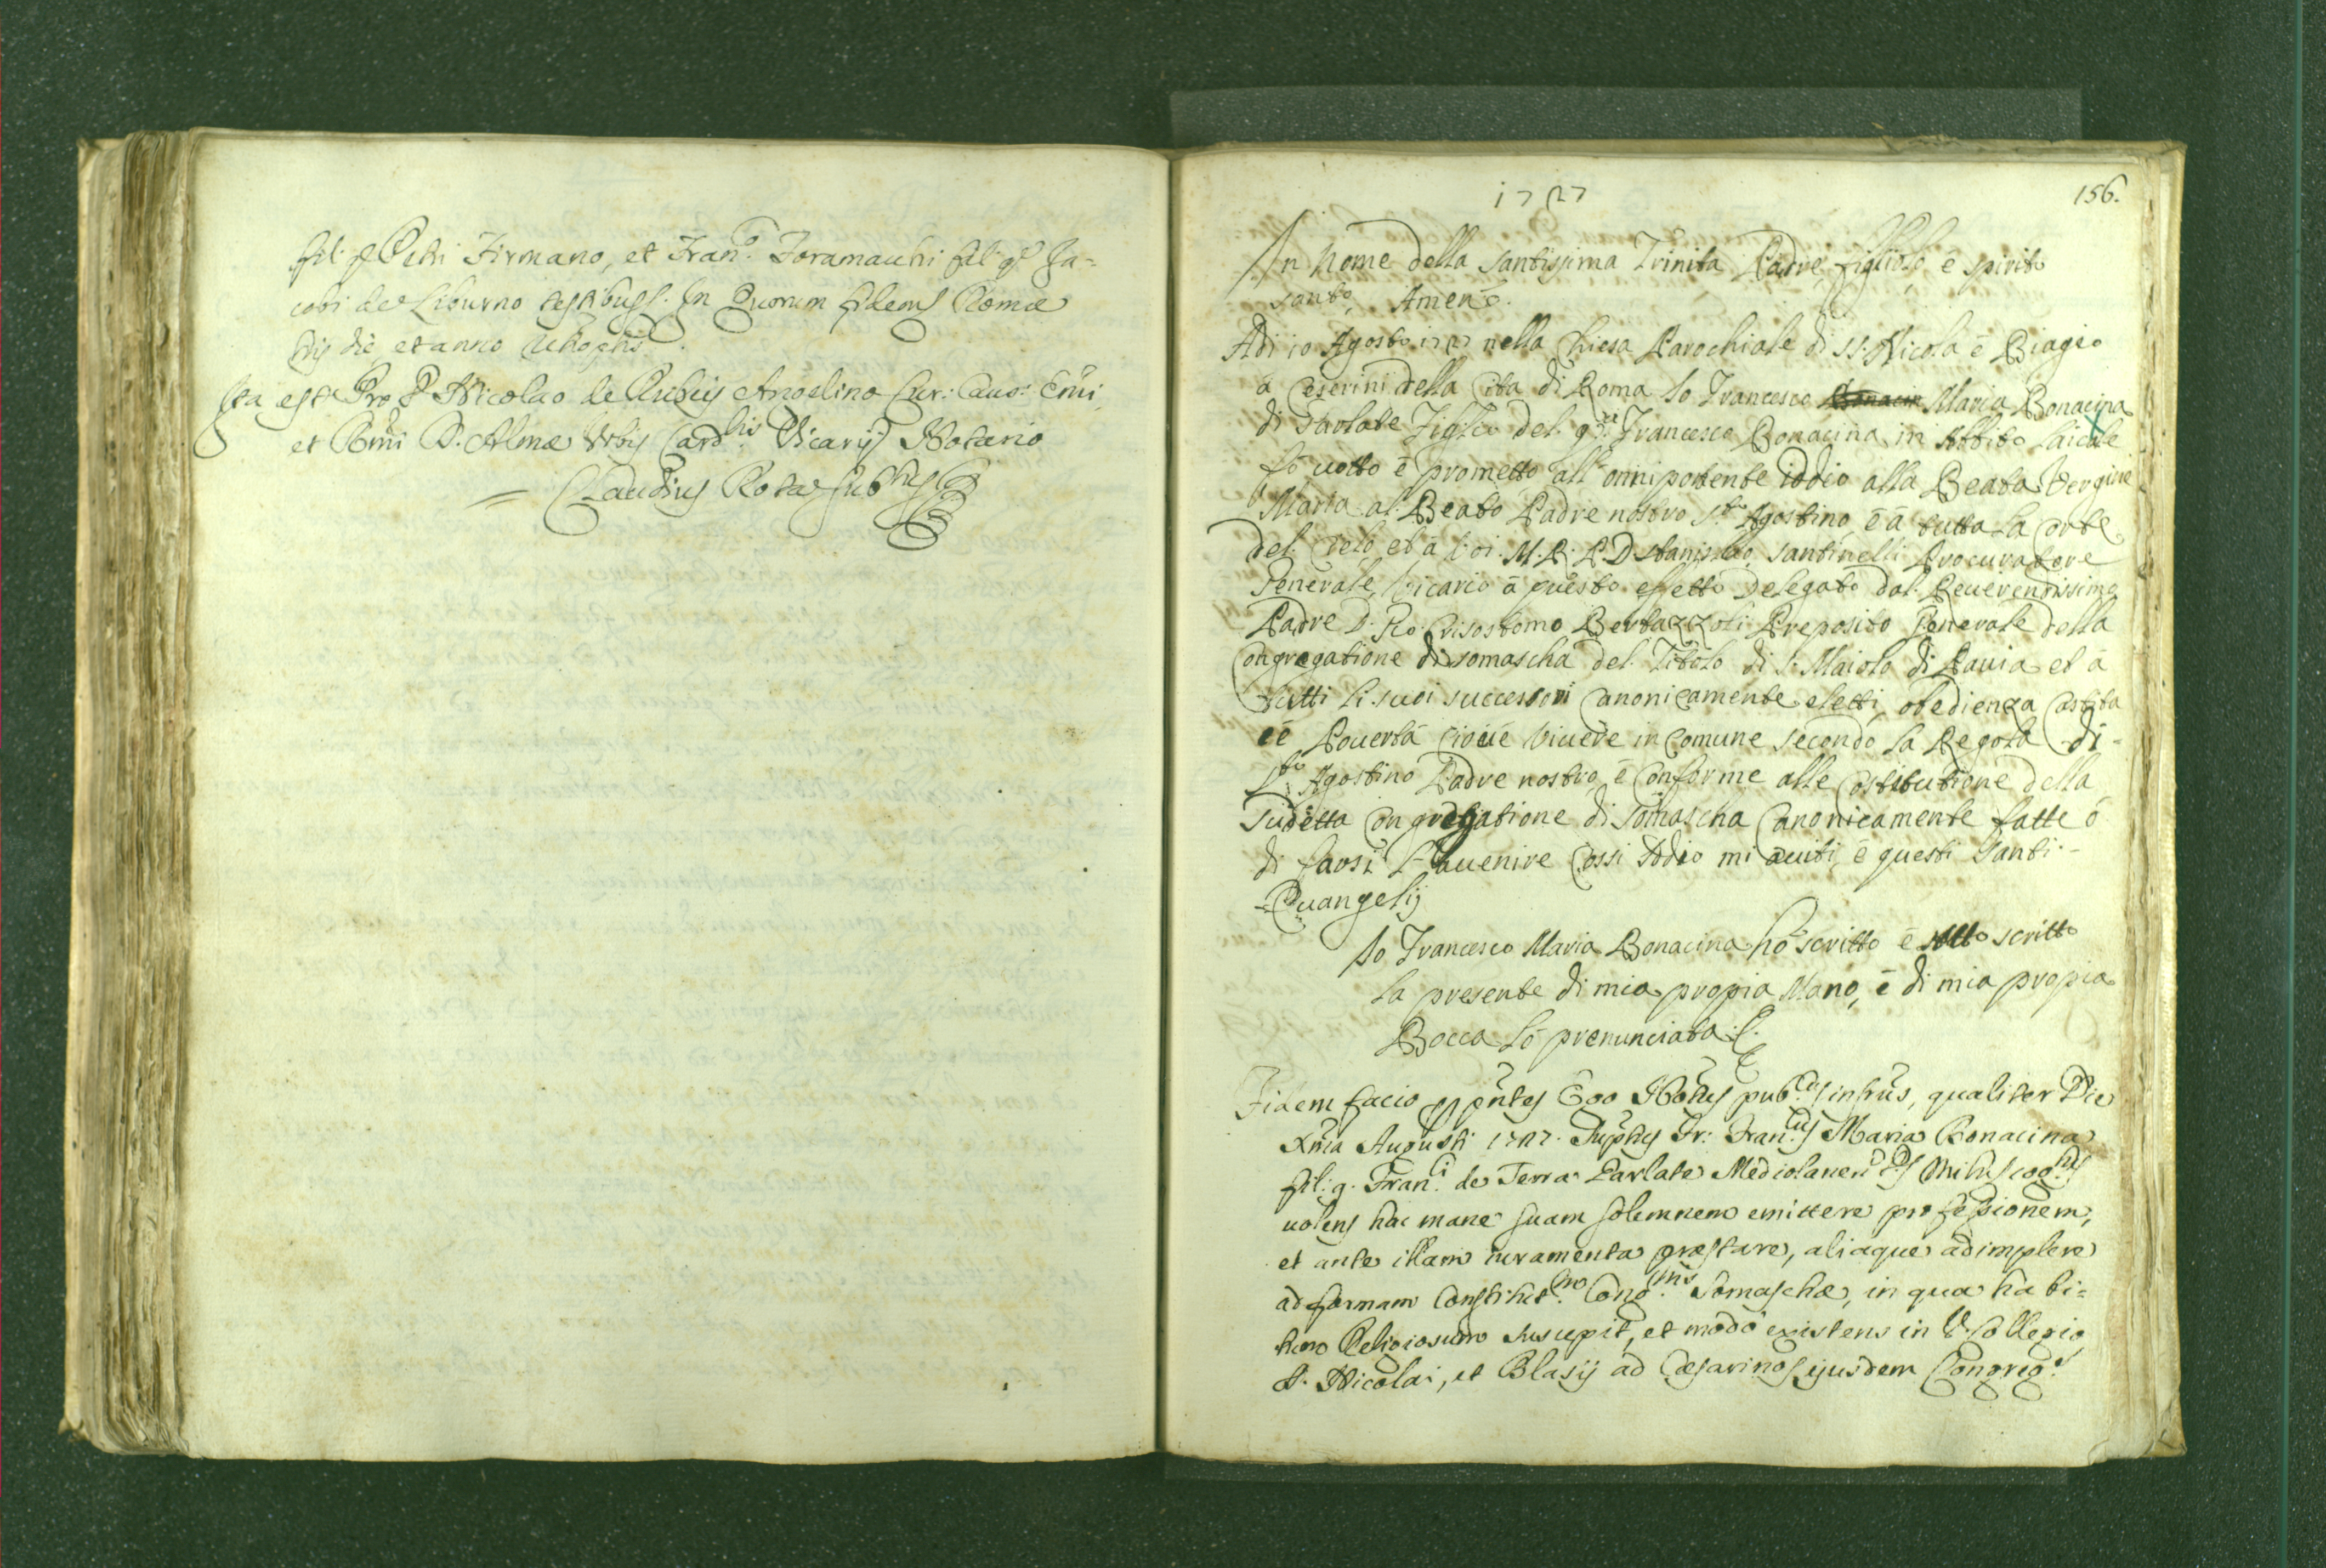 fil: q Petri Firmano, et Fran.º Foramacchi fil: q Ja=
cobi de Liburno testibus. In quorum fidem Romæ
die et anno
Ita est Pro D Nicolao de Rubeis Angelino Cur: Caus: Emi,
et Rmi D. Almæ Urbis Card.lis Vicarij Notario
= Claudius Rota
1727
156.
In Nome della Santissima Trinita Padre, figliolo, é spirito
santo, Amen.
Adi 10 Agosto 1727 nella Chiesa Parochiale di SS. Nicola é Biagio
á Ceserini della Cita di Roma Io Francesco Bonacin Maria Bonacina
di Parlate Figlio del Francesco Bonacina in Abbito Laicale
fó votto é prometto all'onnipotente iddio alla Beata Vergine
Maria al Beato Padre nostro S.to Agostino, é á tutta la Corte
del Celo, et á Voi M. R. P. D Stanislao Santinelli Procuratore
Generale, Vicario á questo effetto Delegato dal Reverendissimo
Padre D. Gio: Crisostomo Bertazzoli Preposito Generale della
Congregatione di Somascha del Titolo di S. Maiolo di Pavia et á
tutti li suoi successori Canonicamente eletti, obedienza Castita
é Povertá cioié Vivere in Comune secondo la Regola di
S.to Agostino Padre nostro, é Conforme alle Costitutione della
Sudetta Congregatione di Somascha Canonicamente fatte ó
di farsi L'avenire Cossi Iddio mi aiuti, é questi Santi
=Evangelij
Io Francesco Maria Bonacina hó scritto é sotto scritto
la presente di mia propia Mano, é di mia propia
Bocca ló prenunciata.
Fidem facio p pntes Ego Notus pub.cus infrus, qualiter Die
Xma Augusti 1727. Fr: Fran.cus Maria Bonacina
fil: q. Fran.ci de Terra Parlate Mediolanen
volens hac mane suam solemnem emittere professionem,
et ante illam iuramenta præstare, aliaque adimplere
ad formam Constitut.m Cong.nis Somaschæ, in qua habi=
tum Religiosum suscepit, et modó existens in V. Collegio
S. Nicolai, et Blasij ad Cæsarinos ejusdem Congreg.s